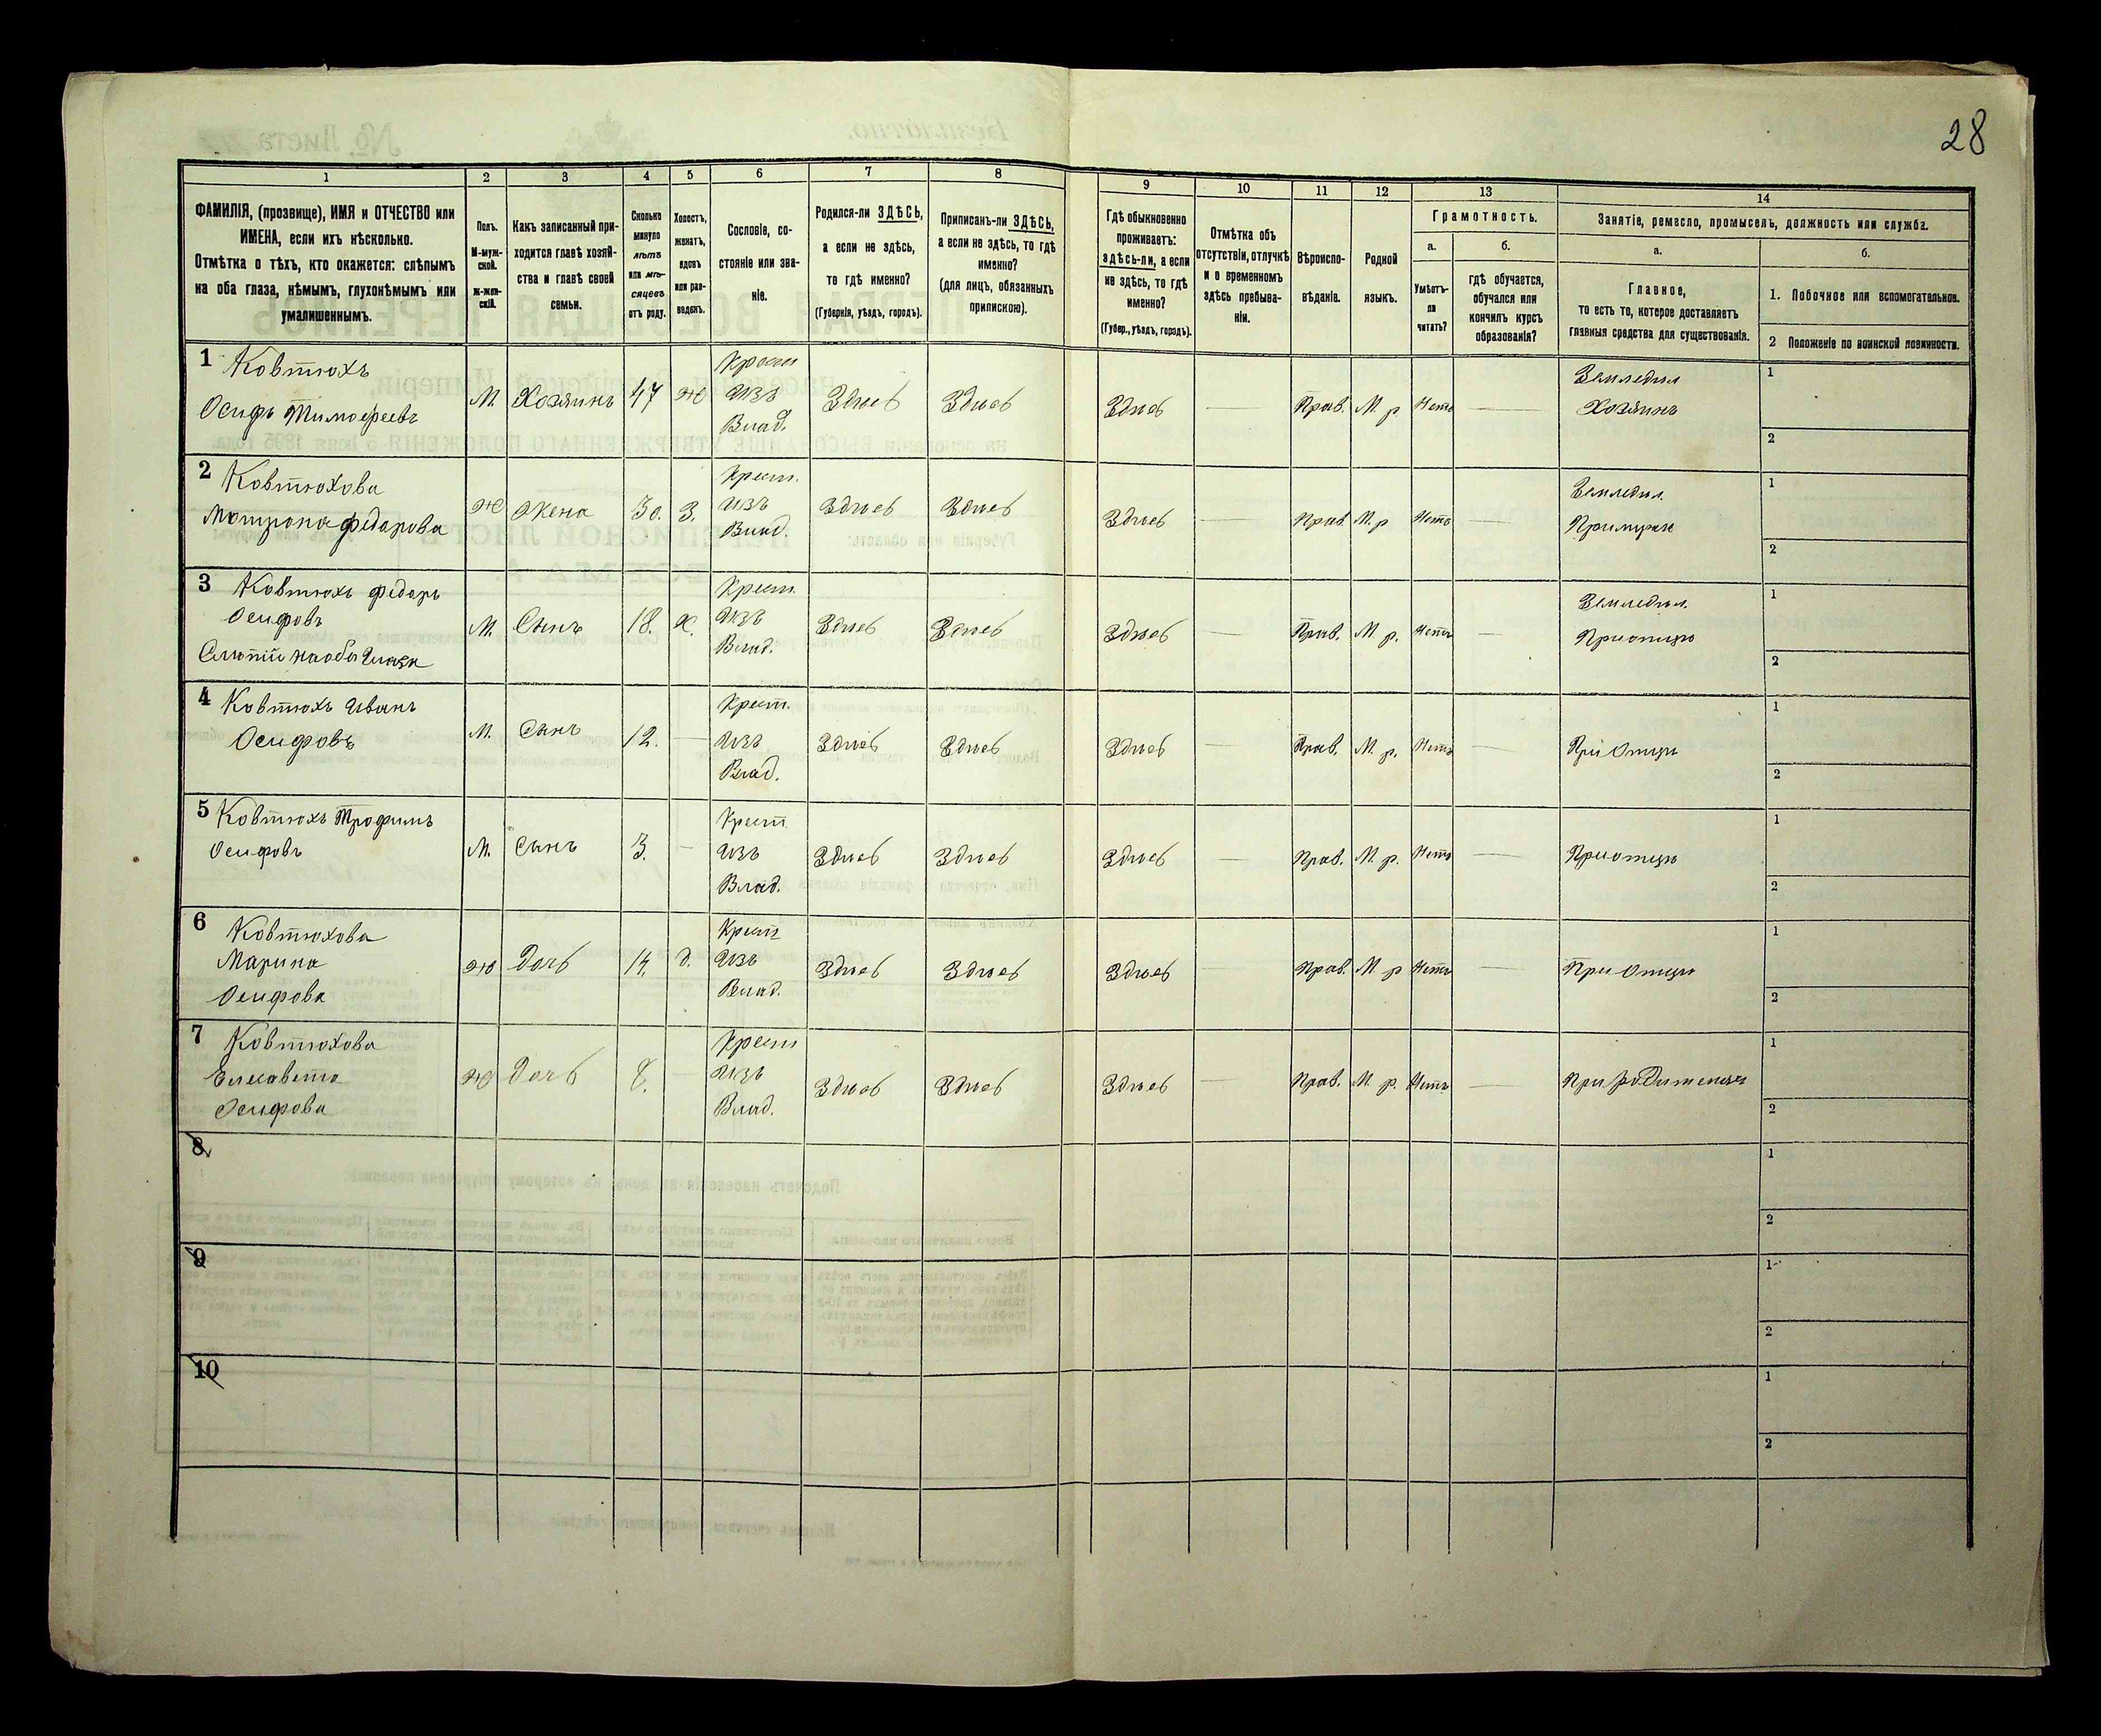 28
1 2 3 4 5 6 7 8 9 10 11 12 13 14
ФАМИЛІЯ, (прозвище), ИМЯ и ОТЧЕСТВО или
ИМЕНА, если ихъ нѣсколько.
Отмѣтка о тѣхъ, кто окажется: слѣпымъ
на оба глаза, нѣмымъ, глухонѣмымъ или
умалишеннымъ.
Полъ.
М-муж-
ской.
Ж-жен-
скій.
Какъ записанный при-
ходится главѣ хозяй-
ства и главѣ своей
семьи.
Сколько
минуло
лѣтъ
или мѣ-
сяцевъ
отъ роду.
Холостъ,
женатъ,
вдовъ
или раз-
веденъ.
Сословіе, со-
стояніе или зва-
ніе.
Родился-ли ЗДѢСЬ,
а если не здѣсь,
то гдѣ именно?
(Губернія, уѣздъ, городъ).
Приписанъ-ли ЗДѢСЬ,
а если не здѣсь, то гдѣ
именно?
(для лицъ, обязанныхъ
припискою).
Гдѣ обыкновенно
проживаетъ:
здѣсь-ли, а если
не здѣсь, то гдѣ
именно?
(Губер., уѣздъ, городъ).
Отмѣтка объ
отсутствіи, отлучкѣ
и о временномъ
здѣсь пребыва-
ніи.
Вѣроиспо-
вѣданіе.
Родной
языкъ.
Грамотность.
а.
Умѣетъ-
ли
читать?
б.
гдѣ обучается,
обучался или
кончилъ курсъ
образованія?
Занятіе, ремесло, промыселъ, должность или служба.
а.
Главное,
то есть то, которое доставляетъ
главныя средства для существованія.
б.
1. Побочное или вспомогательное.
2 Положеніе по воинской повинности.
1 Ковтюхъ
Осифъ Тимофеевъ
М. Хозяинъ 47 Ж
Крест
изъ
Влад.
Здѣсь Здѣсь Здѣсь — Прав. М. р. Нетъ —
Земледѣл
Хозяинъ
1
2
2 Ковтюхова
Матрона Федарова
Ж Жена 30. З.
Крест.
изъ
Влад.
Здѣсь Здѣсь Здѣсь — Прав. М. р Нетъ
Земледѣл.
1
2
3 Ковтюхъ Федаръ
Осифовъ
Слѣпій на оба глаза
М. Сынъ 18. Х.
Крест.
изъ
Влад.
Здѣсь Здѣсь Здѣсь — Прав. М. р. Нетъ —
Земледѣл.
При отцѣ
1
2
4 Ковтюхъ Иванъ
Осифовъ
М. Сынъ 12. —
Крест.
изъ
Влад.
Здѣсь Здѣсь Здѣсь — Прав. М. р. Нетъ —
При Отцѣ
1
2
5 Ковтюхъ Трофимъ
Осифовъ
М. Сынъ 3. —
Крест
изъ
Влад.
Здѣсь Здѣсь Здѣсь — Прав. М. р. Нетъ —
При отцѣ
1
2
6 Ковтюхова
Марина
Осифова
Ж Дочь 14. д.
Крест
изъ
Влад.
Здѣсь Здѣсь Здѣсь Прав. М р Нетъ —
При Отцѣ
1
2
7 Ковтюхова
Елисавета
Осифова
Ж Дочь 8. —
Крест
изъ
Влад.
Здѣсь Здѣсь Здѣсь — Прав. М. р. Нетъ —
1
2
8
1
2
9
1
2
10
1
2